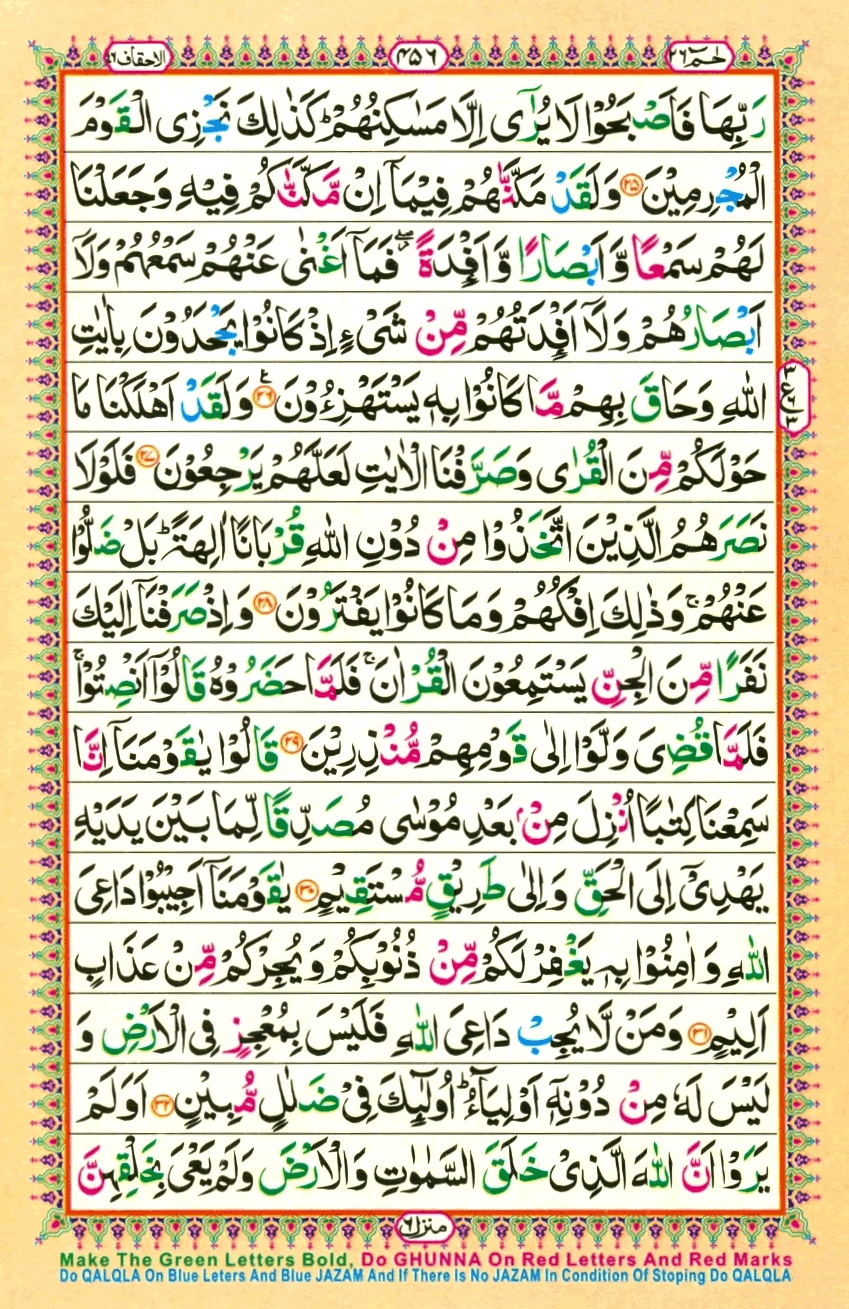 حٰمٓ ٢٦
٤٥٦
الاحقاف ٤٦
رَبِّهَا فَاَصْبَحُوْا لَا يُرٰٓى اِلَّا مَسٰكِنُهُمْ ؕ كَذٰلِكَ نَجْزِى الْقَوْمَ
الْمُجْرِمِيْنَ ۝۲۵ وَلَقَدْ مَكَّنّٰهُمْ فِيْمَاۤ اِنْ مَّكَّنّٰكُمْ فِيْهِ وَجَعَلْنَا
لَهُمْ سَمْعًا وَّاَبْصَارًا وَّاَفْـِٕدَةً ۖ فَمَاۤ اَغْنٰى عَنْهُمْ سَمْعُهُمْ وَلَاۤ
اَبْصَارُهُمْ وَلَاۤ اَفْـِٕدَتُهُمْ مِّنْ شَىْءٍ اِذْ كَانُوْا يَجْحَدُوْنَ بِاٰيٰتِ
اللّٰهِ وَحَاقَ بِهِمْ مَّا كَانُوْا بِهٖ يَسْتَهْزِءُوْنَ ۝۲۶ وَلَقَدْ اَهْلَكْنَا مَا
حَوْلَكُمْ مِّنَ الْقُرٰى وَصَرَّفْنَا الْاٰيٰتِ لَعَلَّهُمْ يَرْجِعُوْنَ ۝۲۷ فَلَوْلَا
نَصَرَهُمُ الَّذِيْنَ اتَّخَذُوْا مِنْ دُوْنِ اللّٰهِ قُرْبَانًا اٰلِهَةً ؕ بَلْ ضَلُّوْا
عَنْهُمْ ۚ وَذٰلِكَ اِفْكُهُمْ وَمَا كَانُوْا يَفْتَرُوْنَ ۝۲۸ وَاِذْ صَرَفْنَاۤ اِلَيْكَ
نَفَرًا مِّنَ الْجِنِّ يَسْتَمِعُوْنَ الْقُرْاٰنَ ۚ فَلَمَّا حَضَرُوْهُ قَالُوْۤا اَنْصِتُوْا ۚ
فَلَمَّا قُضِىَ وَلَّوْا اِلٰى قَوْمِهِمْ مُّنْذِرِيْنَ ۝۲۹ قَالُوْا يٰقَوْمَنَاۤ اِنَّا
سَمِعْنَا كِتٰبًا اُنْزِلَ مِنْۢ بَعْدِ مُوْسٰى مُصَدِّقًا لِّمَا بَيْنَ يَدَيْهِ
يَهْدِىْۤ اِلَى الْحَقِّ وَاِلٰى طَرِيْقٍ مُّسْتَقِيْمٍ ۝۳۰ يٰقَوْمَنَاۤ اَجِيْبُوْا دَاعِىَ
اللّٰهِ وَاٰمِنُوْا بِهٖ يَغْفِرْ لَكُمْ مِّنْ ذُنُوْبِكُمْ وَيُجِرْكُمْ مِّنْ عَذَابٍ
اَلِيْمٍ ۝۳۱ وَمَنْ لَّا يُجِبْ دَاعِىَ اللّٰهِ فَلَيْسَ بِمُعْجِزٍ فِى الْاَرْضِ وَ
لَيْسَ لَهٗ مِنْ دُوْنِهٖۤ اَوْلِيَآءُ ؕ اُولٰٓئِكَ فِىْ ضَلٰلٍ مُّبِيْنٍ ۝۳۲ اَوَلَمْ
يَرَوْا اَنَّ اللّٰهَ الَّذِىْ خَلَقَ السَّمٰوٰتِ وَالْاَرْضَ وَلَمْ يَعْىَ بِخَلْقِهِنَّ
منزل ٦
Make The Green Letters Bold, Do GHUNNA On Red Letters And Red Marks
Do QALQLA On Blue Leters And Blue JAZAM And If There Is No JAZAM In Condition Of Stoping Do QALQLA